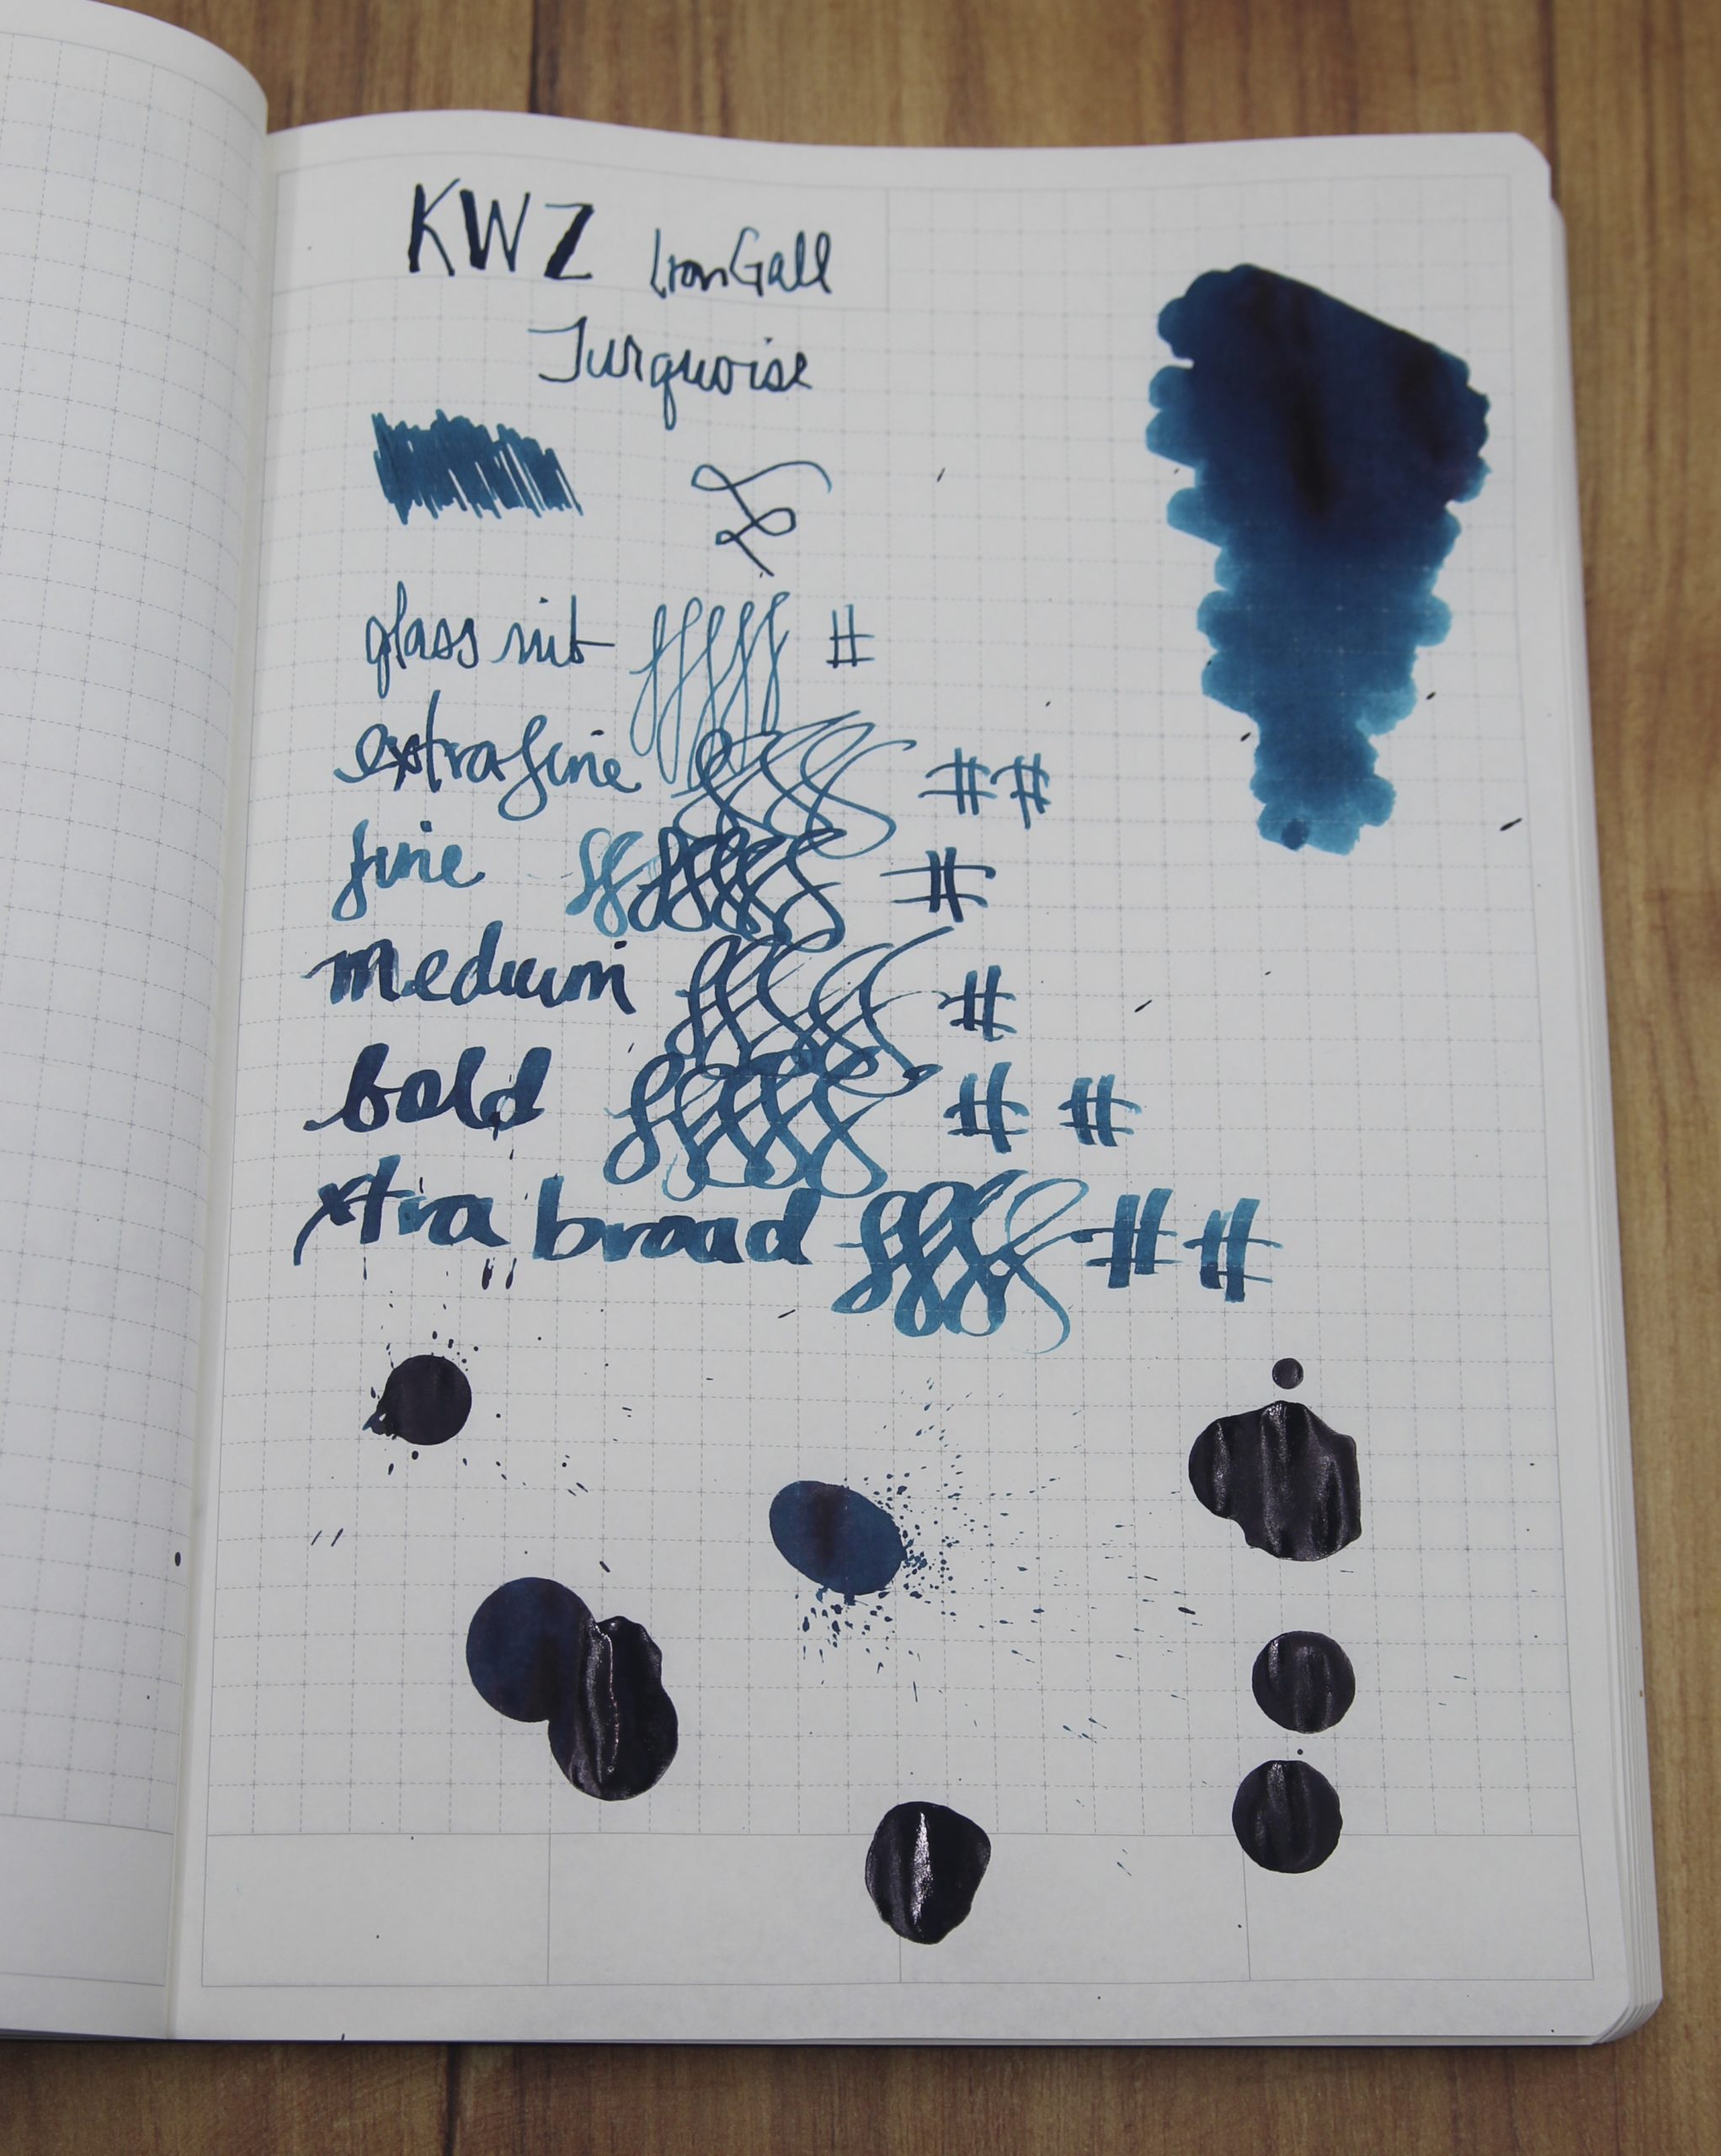 KWZ Iron Gall
Turquoise
glass nib #
extra fine ##
fine #
medium #
bold # #
xtra broad # #